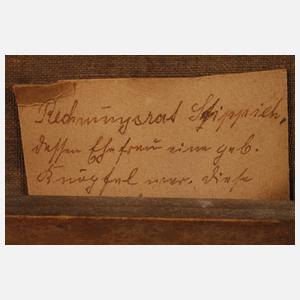 Rechnungsrat Stippich,
dessen Ehefrau eine geb.
Knöpfel war. diese